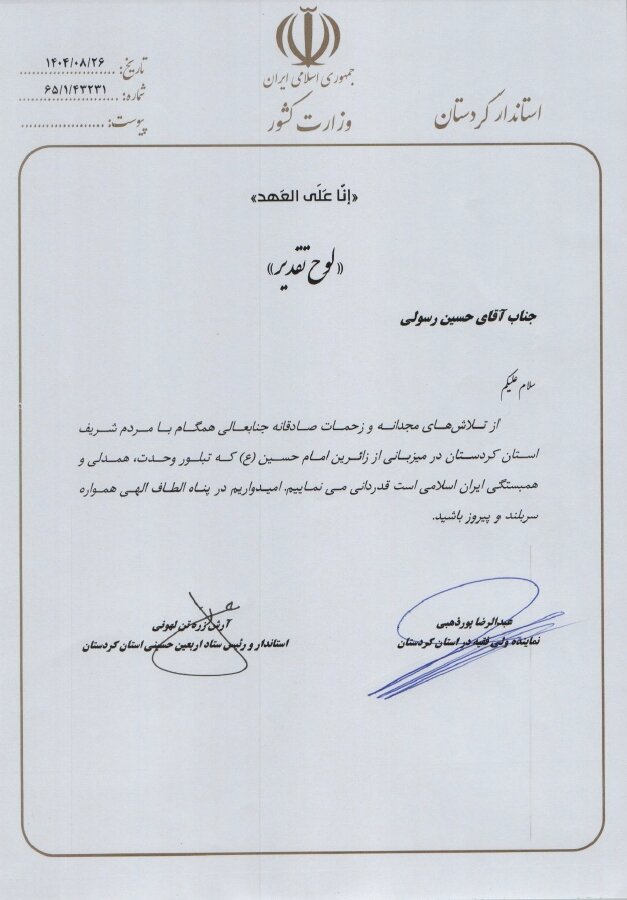 جمهوری اسلامی ایران
وزارت کشور
استاندار کردستان
تاریخ: ۱۴۰۴/۰۸/۲۶
شماره: ۶۵/۱/۴۳۲۳۱
پیوست:
«إنّا عَلَی العَهد»
«لوح تقدیر»
جناب آقای حسین رسولی
سلام علیکم
از تلاش‌های مجدانه و زحمات صادقانه جنابعالی همگام با مردم شریف
استان کردستان در میزبانی از زائرین امام حسین (ع) که تبلور وحدت، همدلی و
همبستگی ایران اسلامی است قدردانی می نماییم. امیدواریم در پناه الطاف الهی همواره
سربلند و پیروز باشید.
عبدالرضا پورذهبی
نماینده ولی فقیه در استان کردستان
آرش زره‌تن لهونی
استاندار و رئیس ستاد اربعین حسینی استان کردستان